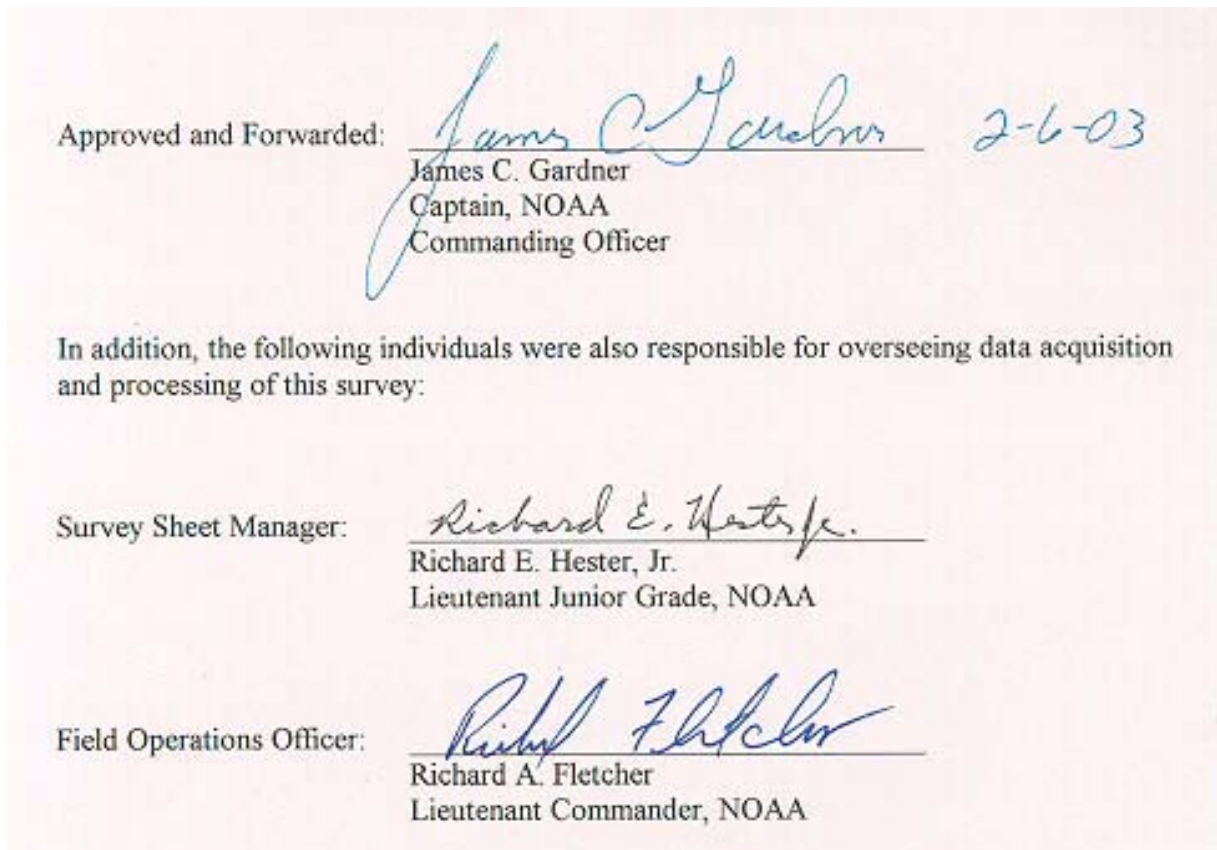 Approved and Forwarded: James C Gardner 2-6-03
James C. Gardner
Captain, NOAA
Commanding Officer
In addition, the following individuals were also responsible for overseeing data acquisition
and processing of this survey:
Survey Sheet Manager: Richard E. Hester Jr.
Richard E. Hester, Jr.
Lieutenant Junior Grade, NOAA
Field Operations Officer: Richard Fletcher
Richard A. Fletcher
Lieutenant Commander, NOAA